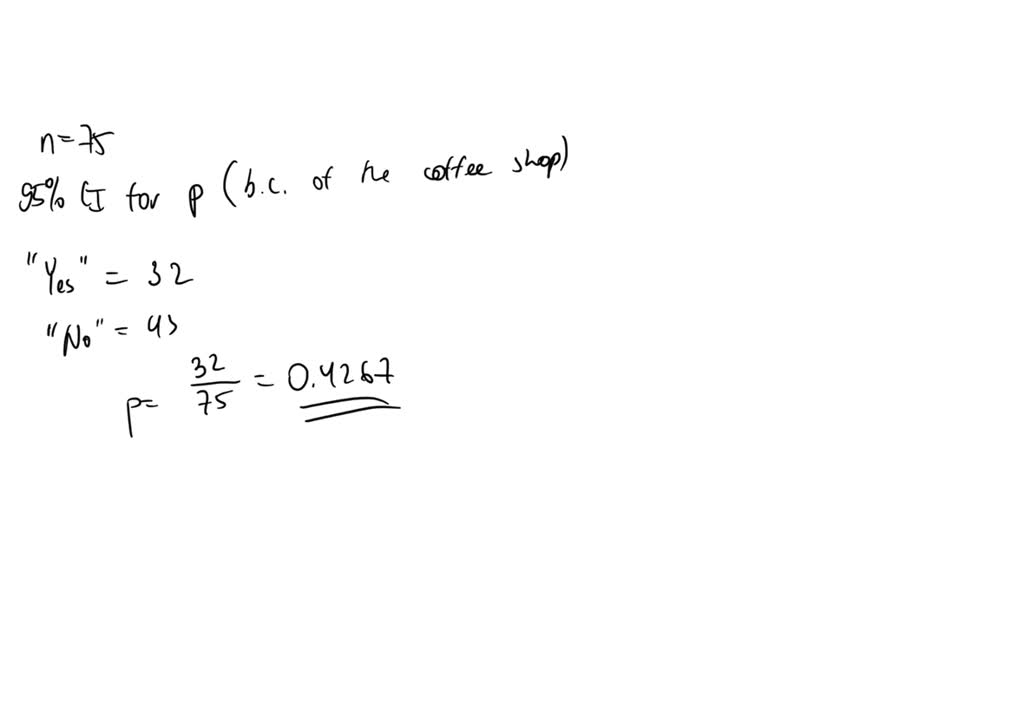 n=75
95% CI for p (b.c. of the coffee shop)
"Yes" = 32
"No" = 43
p= 32/75 = 0.4267